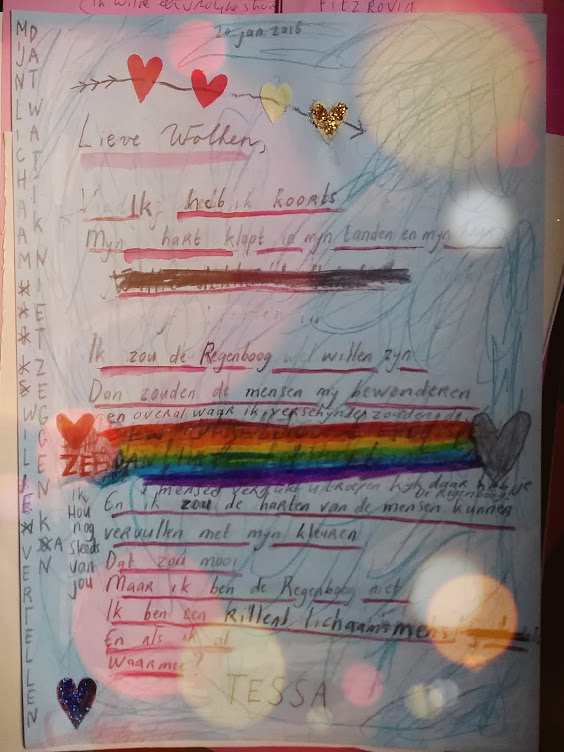 (Ik wilde
FITZROVIA
20 jan 2016
Lieve Wolken,
Ik heb ik koorts
Mijn hart klopt in mijn tanden en mijn
Ik zou de Regenboog wel willen zijn
Dan zouden de mensen mij bewonderen
en overal waar ik verscheen zouden de
ZEE
mensen verrukt uitroepen kijk daar heb je
De Regenboog!
En ik zou de harten van de mensen kunnen
vervullen met mijn kleuren
Dat zou mooi
Maar ik ben de Regenboog niet
Ik ben een Rillend lichaamsmens
En als ik al
waarmee?
TESSA
MIJN LICHAAM WIL JE VERTELLEN
DAT WAT IK NIET ZEGGEN KAN
Ik
Hou
nog
steeds
van
jou